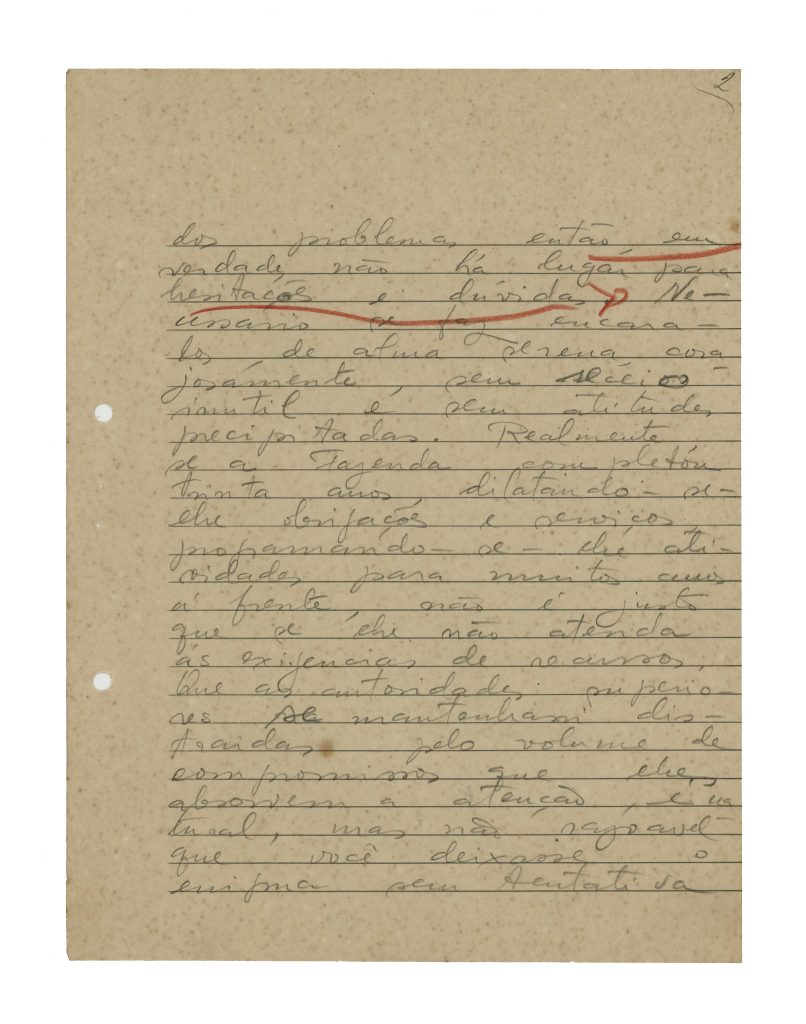 2
dos problemas, então em
verdade, não há lugar para
hesitações e dúvidas. Ne-
cessario se faz encara-
los de alma serena, cora
josamente, sem receio
inutil e sem atitudes
precipitadas. Realmente
se a Fazenda completou
trinta anos, dilatando-se-
lhe obrigações e serviços,
programando-se-lhe ati-
vidades para muitos anos
á frente, não é justo
que se lhe não atenda
ás exigencias de recursos.
Que as autoridades superio-
res se mantenham dis-
traidas pelo volume de
compromissos que lhes
absorvem a atenção, é na
tural, mas não razoavel
que você deixasse o
enigma sem tentativa